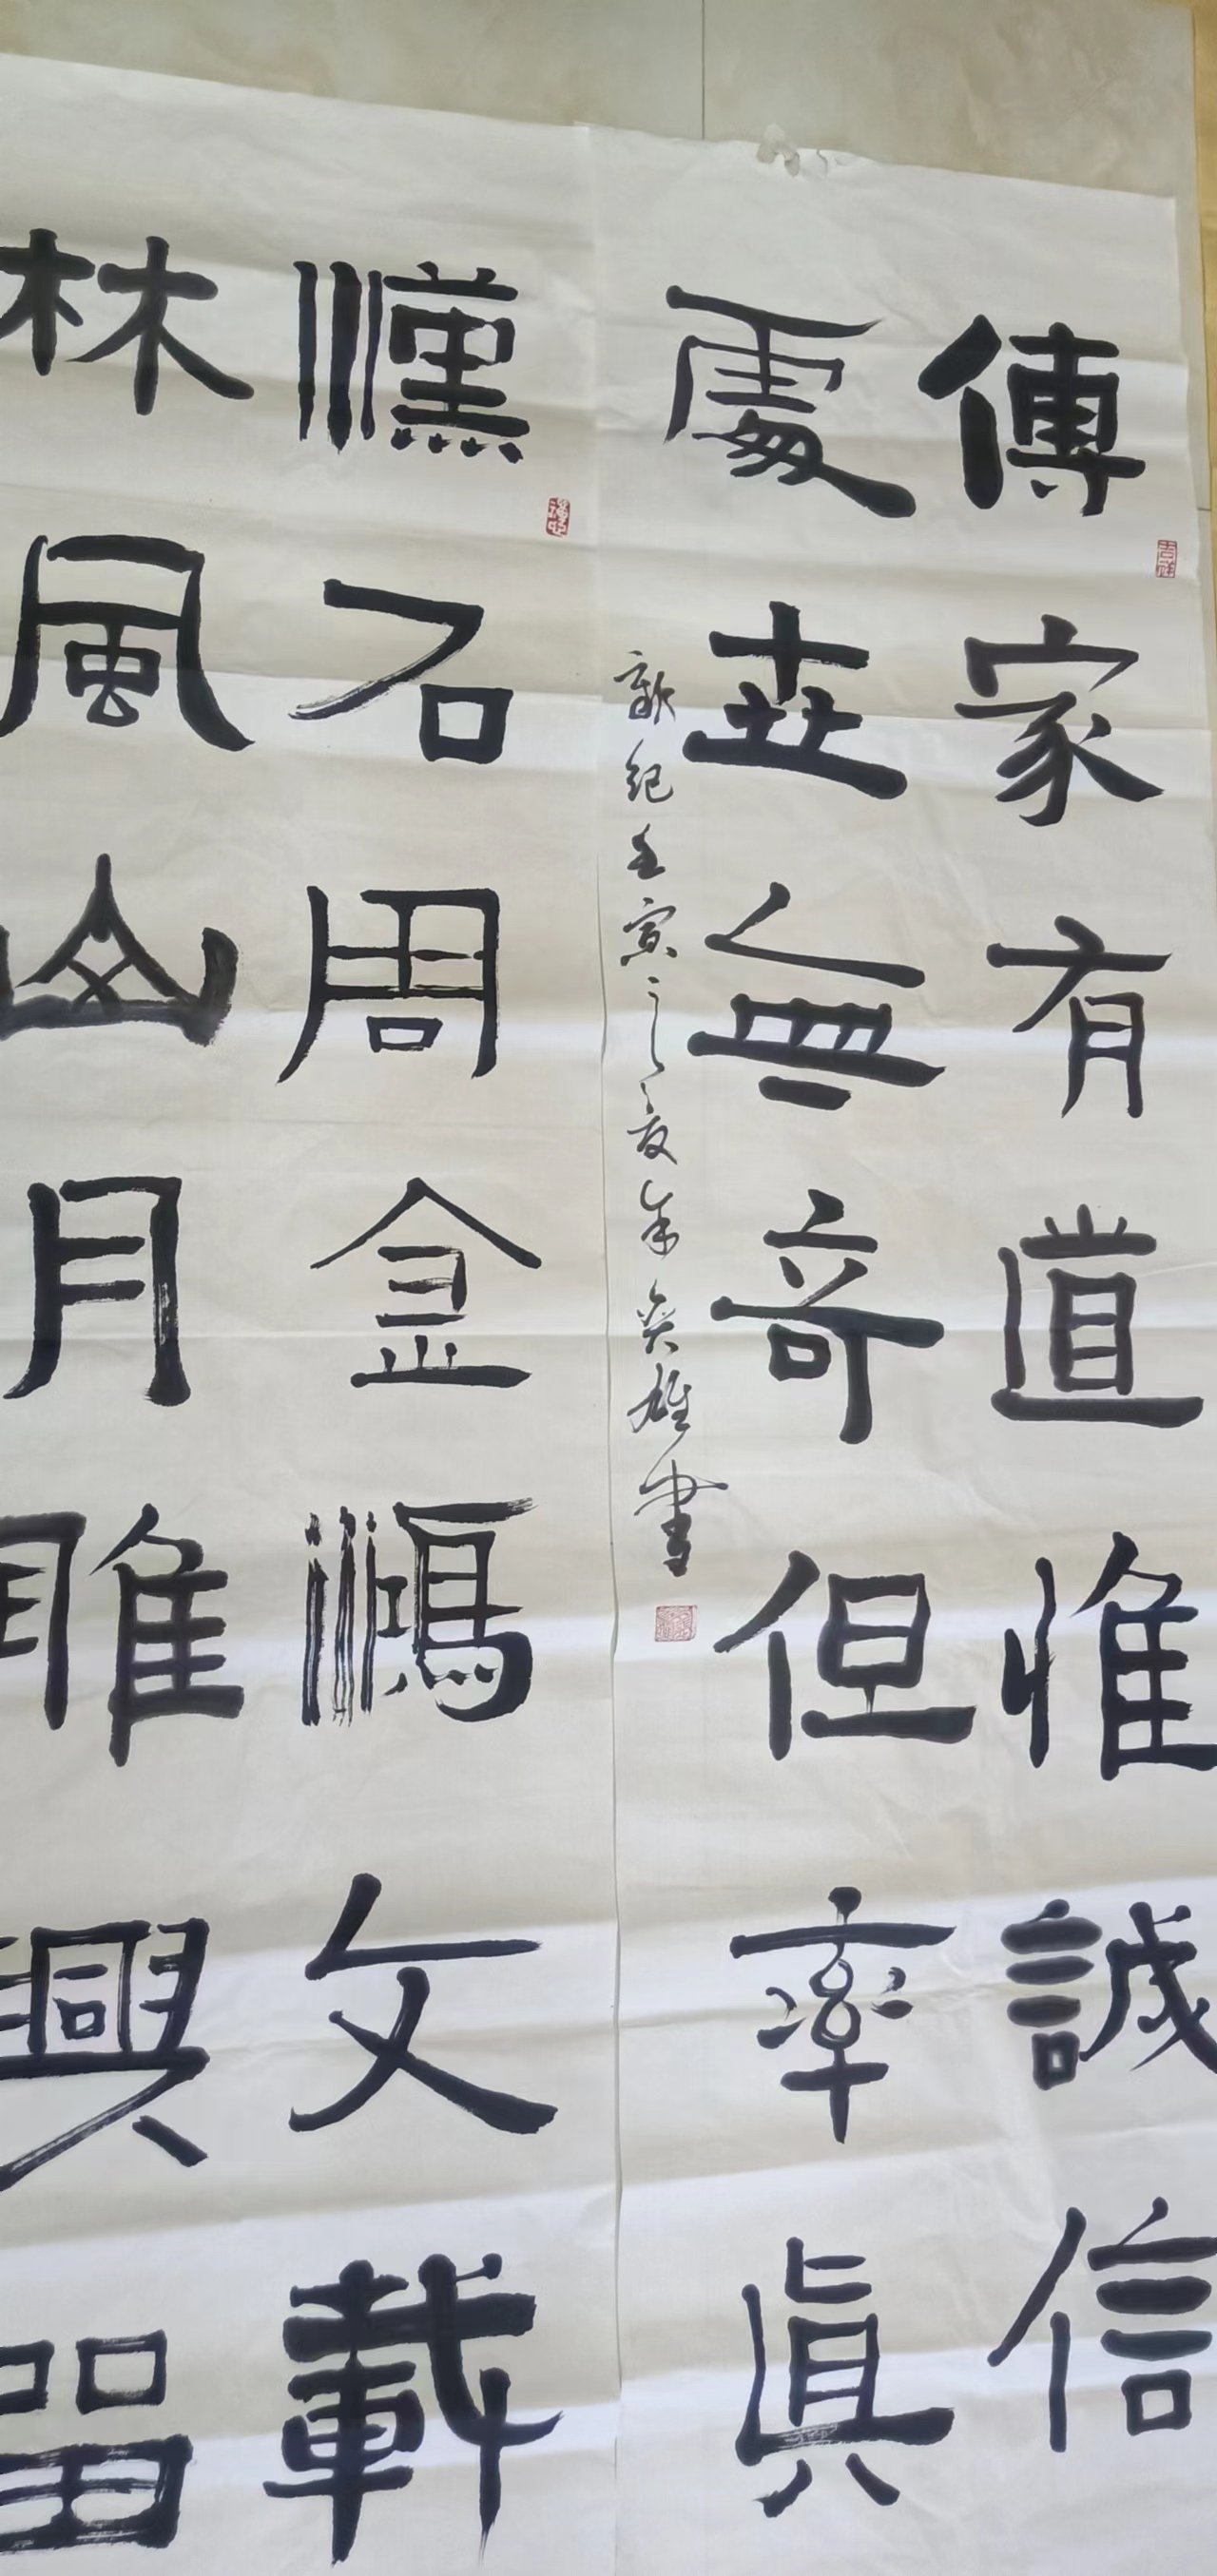 傳家有道惟誠信
吉祥
處世無奇但率真
紀壬寅之夏朱雄書
漢石周金鴻文載
林風山月雅興留